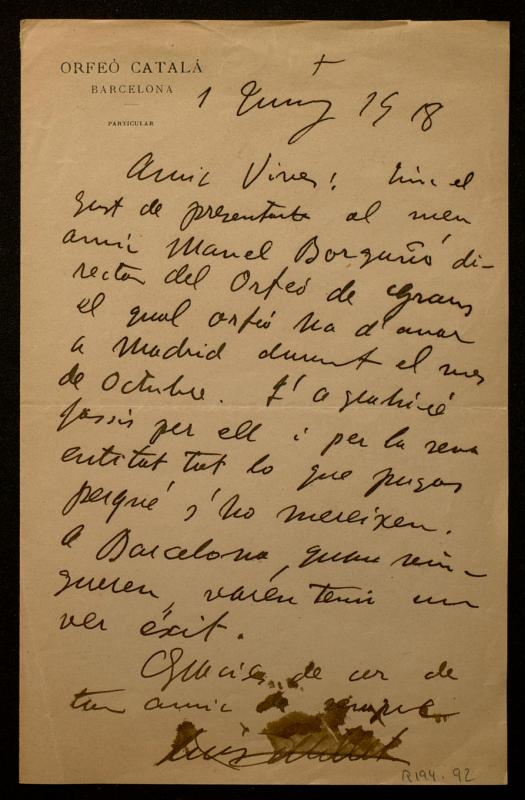 ORFEÓ CATALÁ
BARCELONA
PARTICULAR
1 Juny 1918
Amic Vives: Tinc el
gust de presentarte al meu
amic Manel Borguñó di-
rector del Orfeó de Graus
el qual orfeó ha d'anar
a Madrid durant el mes
de Octubre. T' agrahiré
fassis per ell i per la seva
entitat tot lo que pugas
perqué s' ho mereixen.
a Barcelona, quan vin-
gueren, varen tenir un
ver éxit.
Gracias de cor de
ton amic de sempre
Lluis Millet
R194. 92